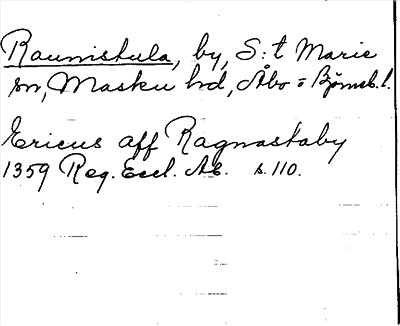 Raunistula, by, S:t Marie
sn, Masku hd, Åbo = Björneb. l.
Ericus aff Ragnastaby
1359 Reg. Eccl. Ab. s. 110.